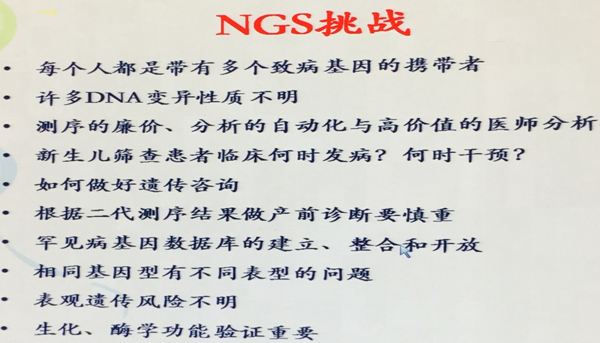 NGS挑战
• 每个人都是带有多个致病基因的携带者
• 许多DNA变异性质不明
• 测序的廉价、分析的自动化与高价值的医师分析
• 新生儿筛查患者临床何时发病？何时干预？
• 如何做好遗传咨询
• 根据二代测序结果做产前诊断要慎重
• 罕见病基因数据库的建立、整合和开放
• 相同基因型有不同表型的问题
• 表观遗传风险不明
• 生化、酶学功能验证重要